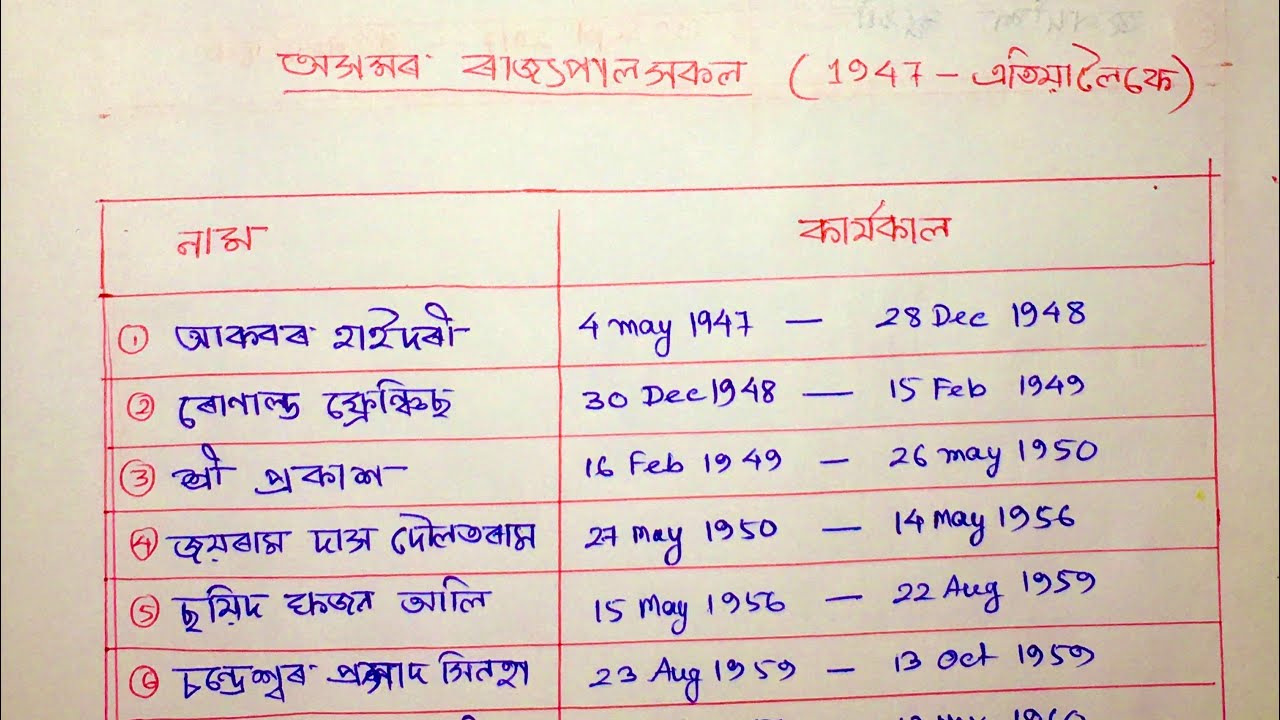 অসমৰ ৰাজ্যপালসকল (1947 - এতিয়ালৈকে)
নাম কাৰ্যকাল
① আকবৰ হাইদৰী 4 may 1947 — 28 Dec 1948
② ৰোণাল্ড ফ্ৰেন্সিছ 30 Dec 1948 — 15 Feb 1949
③ শ্ৰী প্ৰকাশ 16 Feb 1949 — 26 may 1950
④ জয়ৰাম দাস দৌলতৰাম 27 may 1950 — 14 May 1956
⑤ ছয়িদ ফজল আলি 15 May 1956 — 22 Aug 1959
⑥ চন্দ্ৰেশ্বৰ প্ৰসাদ সিনহা 23 Aug 1959 — 13 Oct 1959